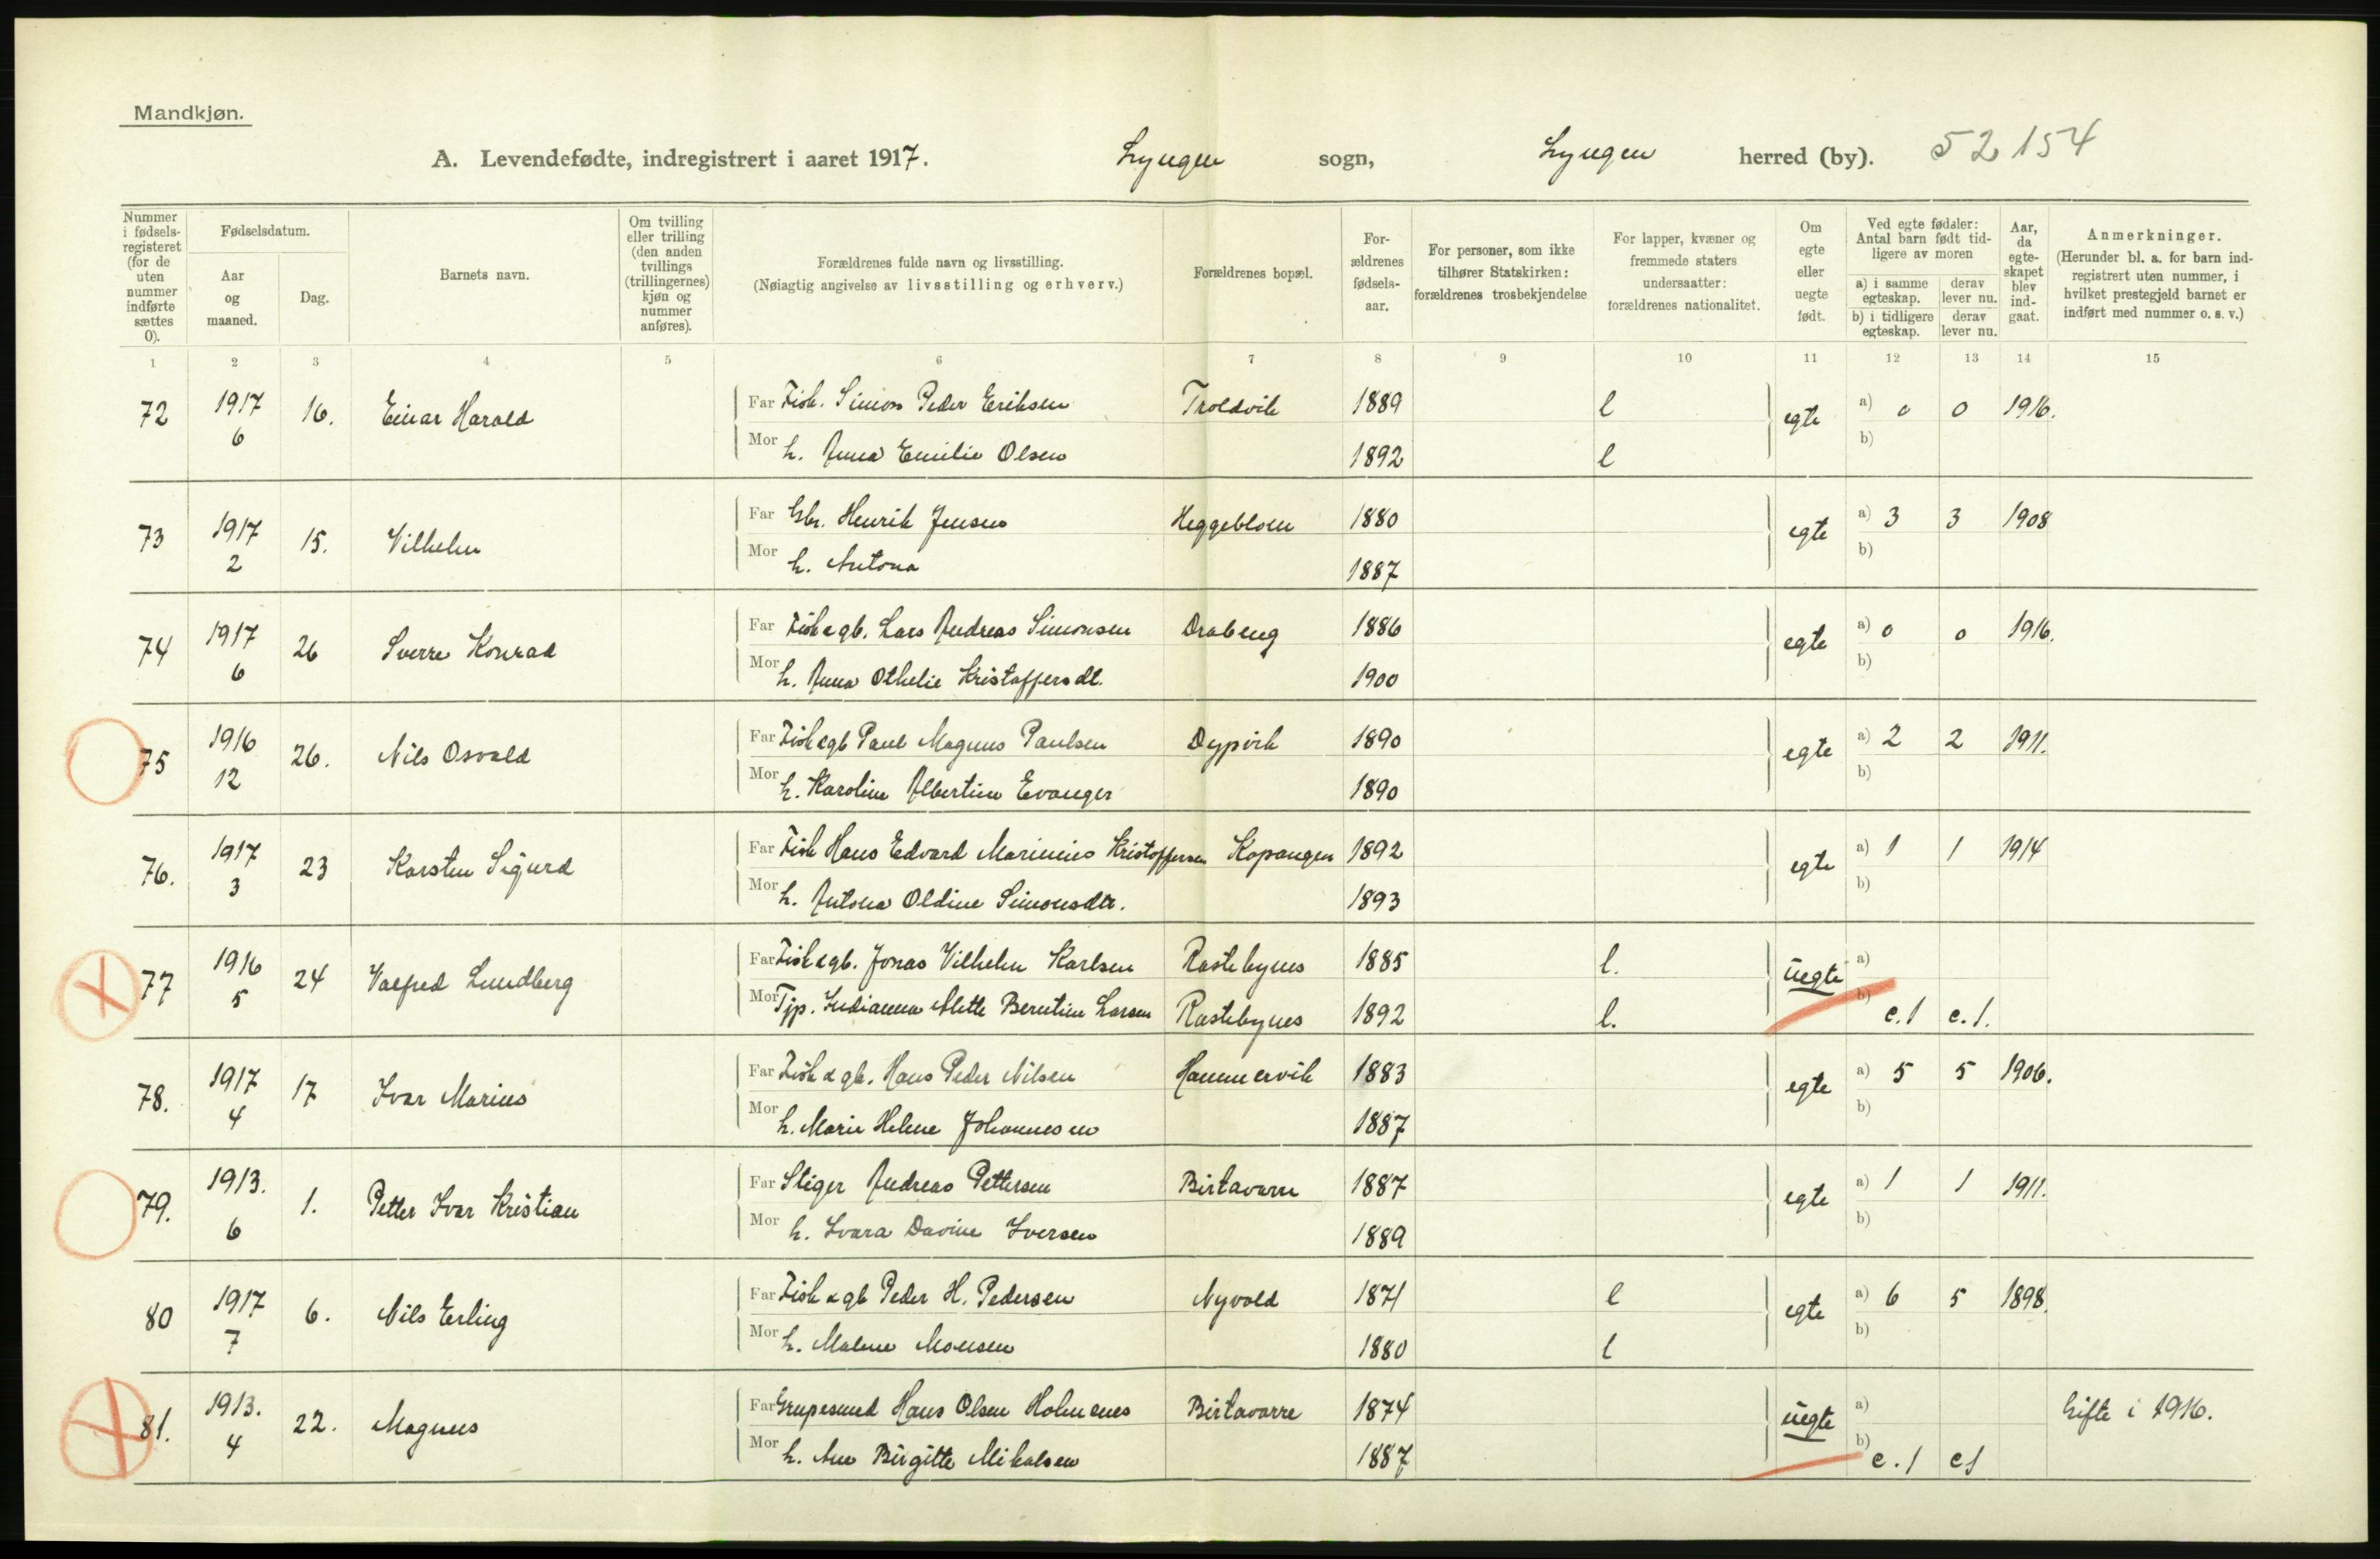 Mandkjøn.
A. Levendefødte, indregistrert i aaret 1917. Lyngen sogn, Lyngen herred (by). 52 154
Nummer i fødsels-registeret (for de uten nummer indførte sættes 0).
Fødselsdatum.
Aar og maaned.
Dag.
Barnets navn.
Om tvilling eller trilling (den anden tvillings (trillingernes) kjøn og nummer anføres).
Forældrenes fulde navn og livsstilling.
(Nøiagtig angivelse av livsstilling og erhverv.)
Forældrenes bopæl.
For-ældrenes fødsels-aar.
For personer, som ikke tilhører Statskirken: forældrenes trosbekjendelse
For lapper, kvæner og fremmede staters undersaatter: forældrenes nationalitet.
Om egte eller uegte født.
Ved egte fødsler: Antal barn født tid-ligere av moren
a) i samme egteskap.
b) i tidligere egteskap.
derav lever nu.
derav lever nu.
Aar, da egte-skapet blev ind-gaat.
Anmerkninger.
(Herunder bl. a. for barn ind-registrert uten nummer, i hvilket prestegjeld barnet er indført med nummer o. s. v.)
1 2 3 4 5 6 7 8 9 10 11 12 13 14 15
72 1917 6 16. Einar Harald Far Fisk. Simon Peder Eriksen Troldvik 1889 l egte a) 0 0 1916.
Mor h. Anna Emilie Olsen 1892 l b)
73 1917 2 15. Vilhelm Far Gbr. Henrik Jensen Heggeblom 1880 egte a) 3 3 1908
Mor h. Antona 1887 b)
74 1917 6 26 Sverre Konrad Far Fisk & gb. Lars Andreas Simonsen Drabeng 1886 egte a) 0 0 1916.
Mor h. Anna Othelie Kristoffersdt. 1900 b)
75 1916 12 26. Nils Osvald Far Fisk & gb Paul Magnus Paulsen Dypvik 1890 egte a) 2 2 1911.
Mor h. Karoline Albertine Evanger 1890 b)
76. 1917 3 23 Karsten Sigurd Far Fisk Hans Edvard Marinius Kristoffersen Kopangen 1892 egte a) 1 1 1914
Mor h. Antona Oldine Simonsdtr. 1893 b)
77 1916 5 24 Valfred Lundberg Far Fisk & gb. Jonas Vilhelm Karlsen Rastebynes 1885 l. uegte a)
Mor Tjp. Indianna Alette Berntine Larsen Rastebynes 1892 l. b) e.1 e.1.
78. 1917 4 17 Ivar Marius Far Fisk & gb. Hans Peder Nilsen Hammervik 1883 egte a) 5 5 1906.
Mor h. Marie Helene Johannesen 1887 b)
79. 1913. 6 1. Petter Ivar Kristian Far Stiger Andreas Pettersen Birtavarre 1887 egte a) 1 1 1911.
Mor h. Ivara Davine Iversen 1889 b)
80 1917 7 6. Nils Erling Far Fisk & gb Peder H. Pedersen Nyvold 1871 l egte a) 6 5 1898.
Mor h. Malene Monsen 1880 l b)
81. 1913. 4 22. Magnus Far Hans Olsen Holmenes Birtavarre 1874 uegte a) Gifte i 1916.
Mor h. Ane Birgitte Mikalsen 1887 b) e.1 e1